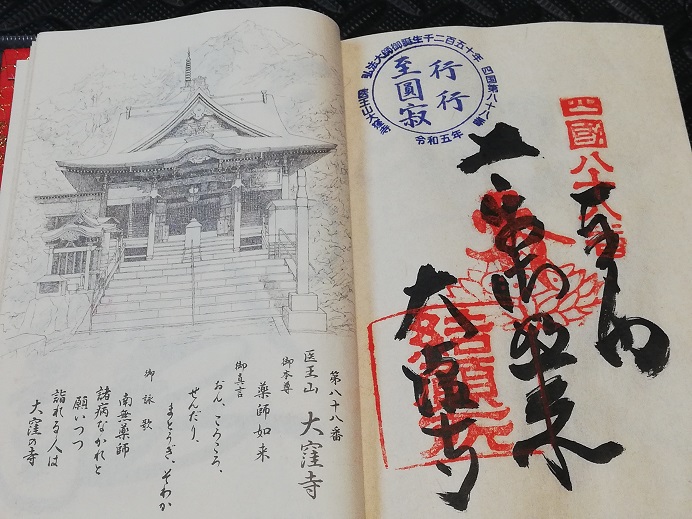 第八十八番
医王山 大窪寺
御本尊
薬師如来
御真言
おん、ころころ、
せんだり、
まとうぎ、そわか
御詠歌
南無薬師
諸病なかれと
願いつつ
詣れる人は
大窪の寺
弘法大師御誕生千二百五十年
四国第八十八番
医王山大窪寺
行行
至圓寂
令和五年
四國八十八番
奉納
薬師如来
大窪寺
結願所